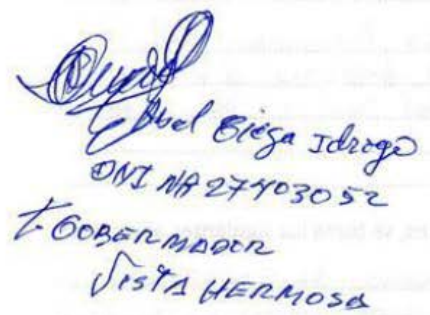 Abel Ciega Idrogo
DNI Nº 27403052
T. GOBERNADOR
VISTA HERMOSA